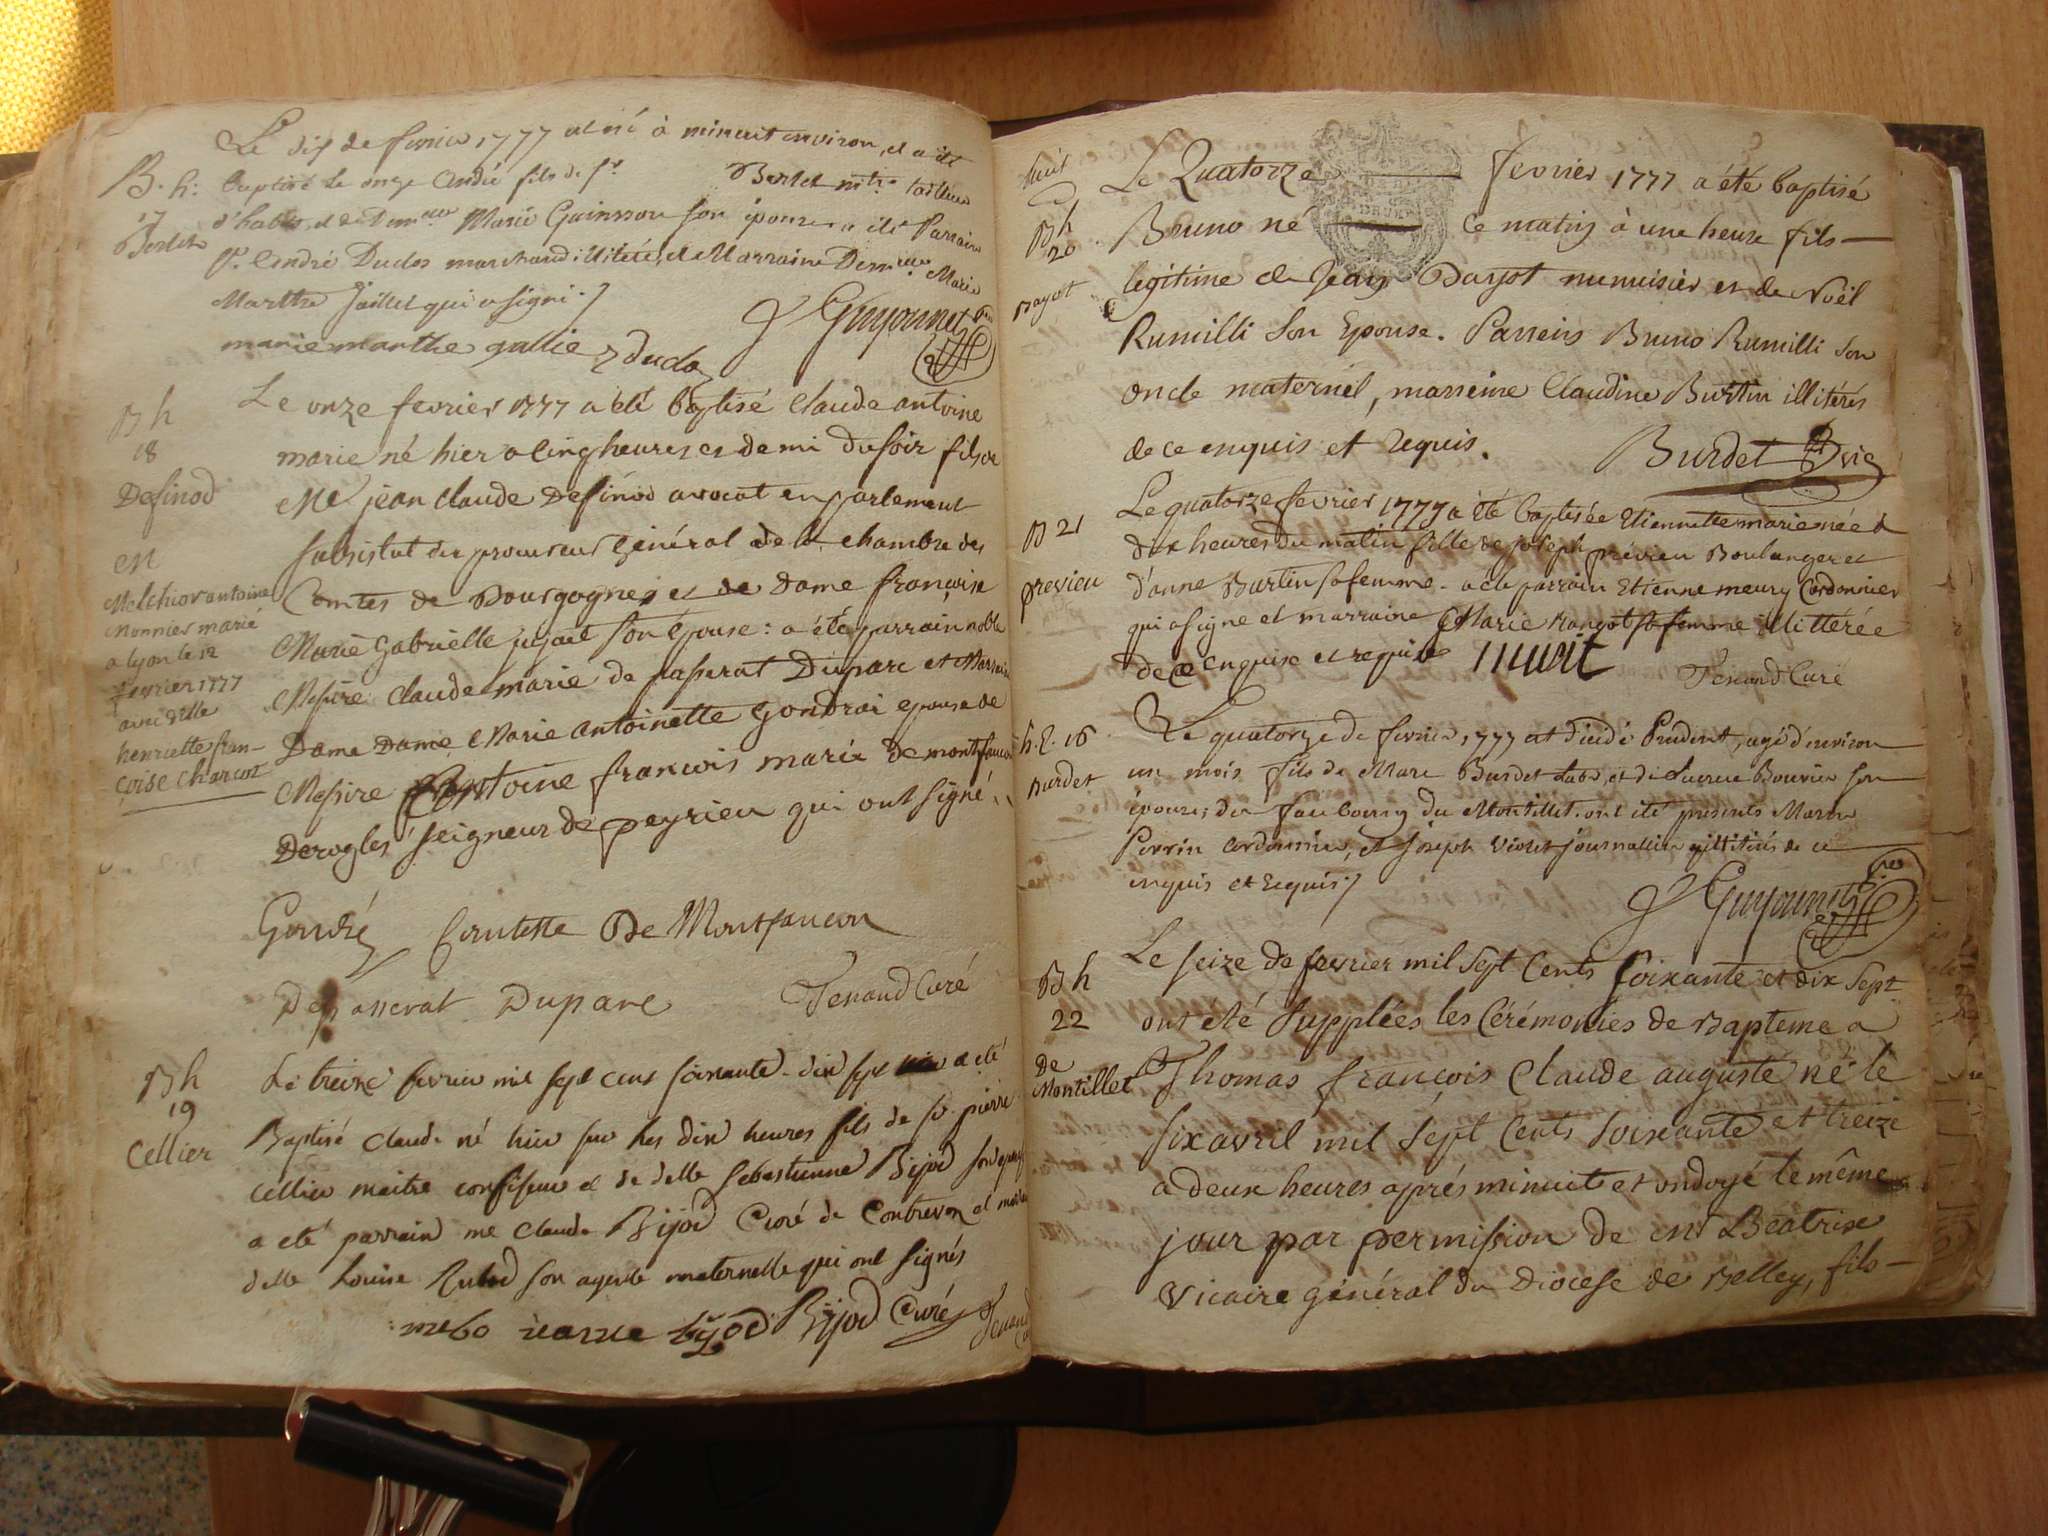 Le dix de fevrier 1777 est né à minuit environ, et a été
B. h: baptisé le onze André fils de Sr Berlet mtre tailleur
17 d'habits, et de Demelle Marie Guinsson son épouse, a été Parrain
Berlet Sr. André Duclos marchand illiteré, et Marraine Demelle Marie
Marthe Jaillet qui a signé ./
J Guyonnet
marie marthe gallie
Le onze fevrier 1777 a été baptisé claude antoine
B h
marie né hier a cinq heures et demi du soir fils de
18
Me jean claude Desinod avocat en parlement
Desinod
substitut du procureur général de la chambre des
Comtes de Bourgogne, et de Dame françoise
Marie Gabrielle jujat son épouse: a été parrain noble
Messire Claude marie de passerat Duparc et Marraine
Dame Dame Marie antoinette Gondrai epouse de
Messire Antoine françois marie de montfaucon
Derogles seigneur de peyrieu qui ont signé
M
Melchior antoine
Monnier marié
a lyon le 12
fevrier 1777
avec Delle
henriette fran-
çoise charcot
Gondré Comtesse De Montfaucon
Depasserat Duparc Tenand Curé
B h
19
Cellier
Le treize fevrier mil sept cens soixante-dix sept a été
Baptisé Claude né hier sur les dix heures fils de sr pierre
Cellier maitre confiseur et de delle Sebastienne Bijod son epouse
a eté parrain me Claude Bijod Curé de Contrevoz et mar
delle Louise son ayeule maternelle qui ont signés
bijod Bijod Curé Tenand
huit
Le Quatorze fevrier 1777 a été baptisé
B h
20
Bruno né ce matin à une heure fils
Dayot
légitime de Jean Dayot menuisier et de Noël
Rumilli son Epouse. Parrein Bruno Rumilli son
oncle maternel, marreine Claudine Burtin illitérés
de ce enquis et requis.
Burdet Vic
B 21
previeu
Le quatorze fevrier 1777 a été baptisée Etiennette marie née à
dix heures du matin fille de joseph previeu Boulanger et
d'anne Burtin sa femme. a été parrain Etienne meury Cordonnier
qui a signé et marraine Marie sa femme illittérée
de ce enquise et requise
Tenand Curé
h. E. 16
Burdet
Le quatorze de fevrier 1777 est decédé Prudent, agé d'environ
un mois fils de Marc Burdet Labr et de Lucrece Bouvier son
épouse, du fauboury du Montillet. ont été presents Marin
Perrin cordonnier, et joseph Violet journallier illitérés de ce
enquis et Requis ./
J Guyonnet
B h
22
de
Montillet
Le seize de fevrier mil sept Cents soixante et dix sept
ont eté supplées les Cérémonies de Bapteme a
Thomas françois Claude auguste né le
six avril mil sept Cents soixante et treize
a deux heures après minuit et ondoyé le même
jour par permission de mr Béatrix
Vicaire général du Diocese de Belley, fils